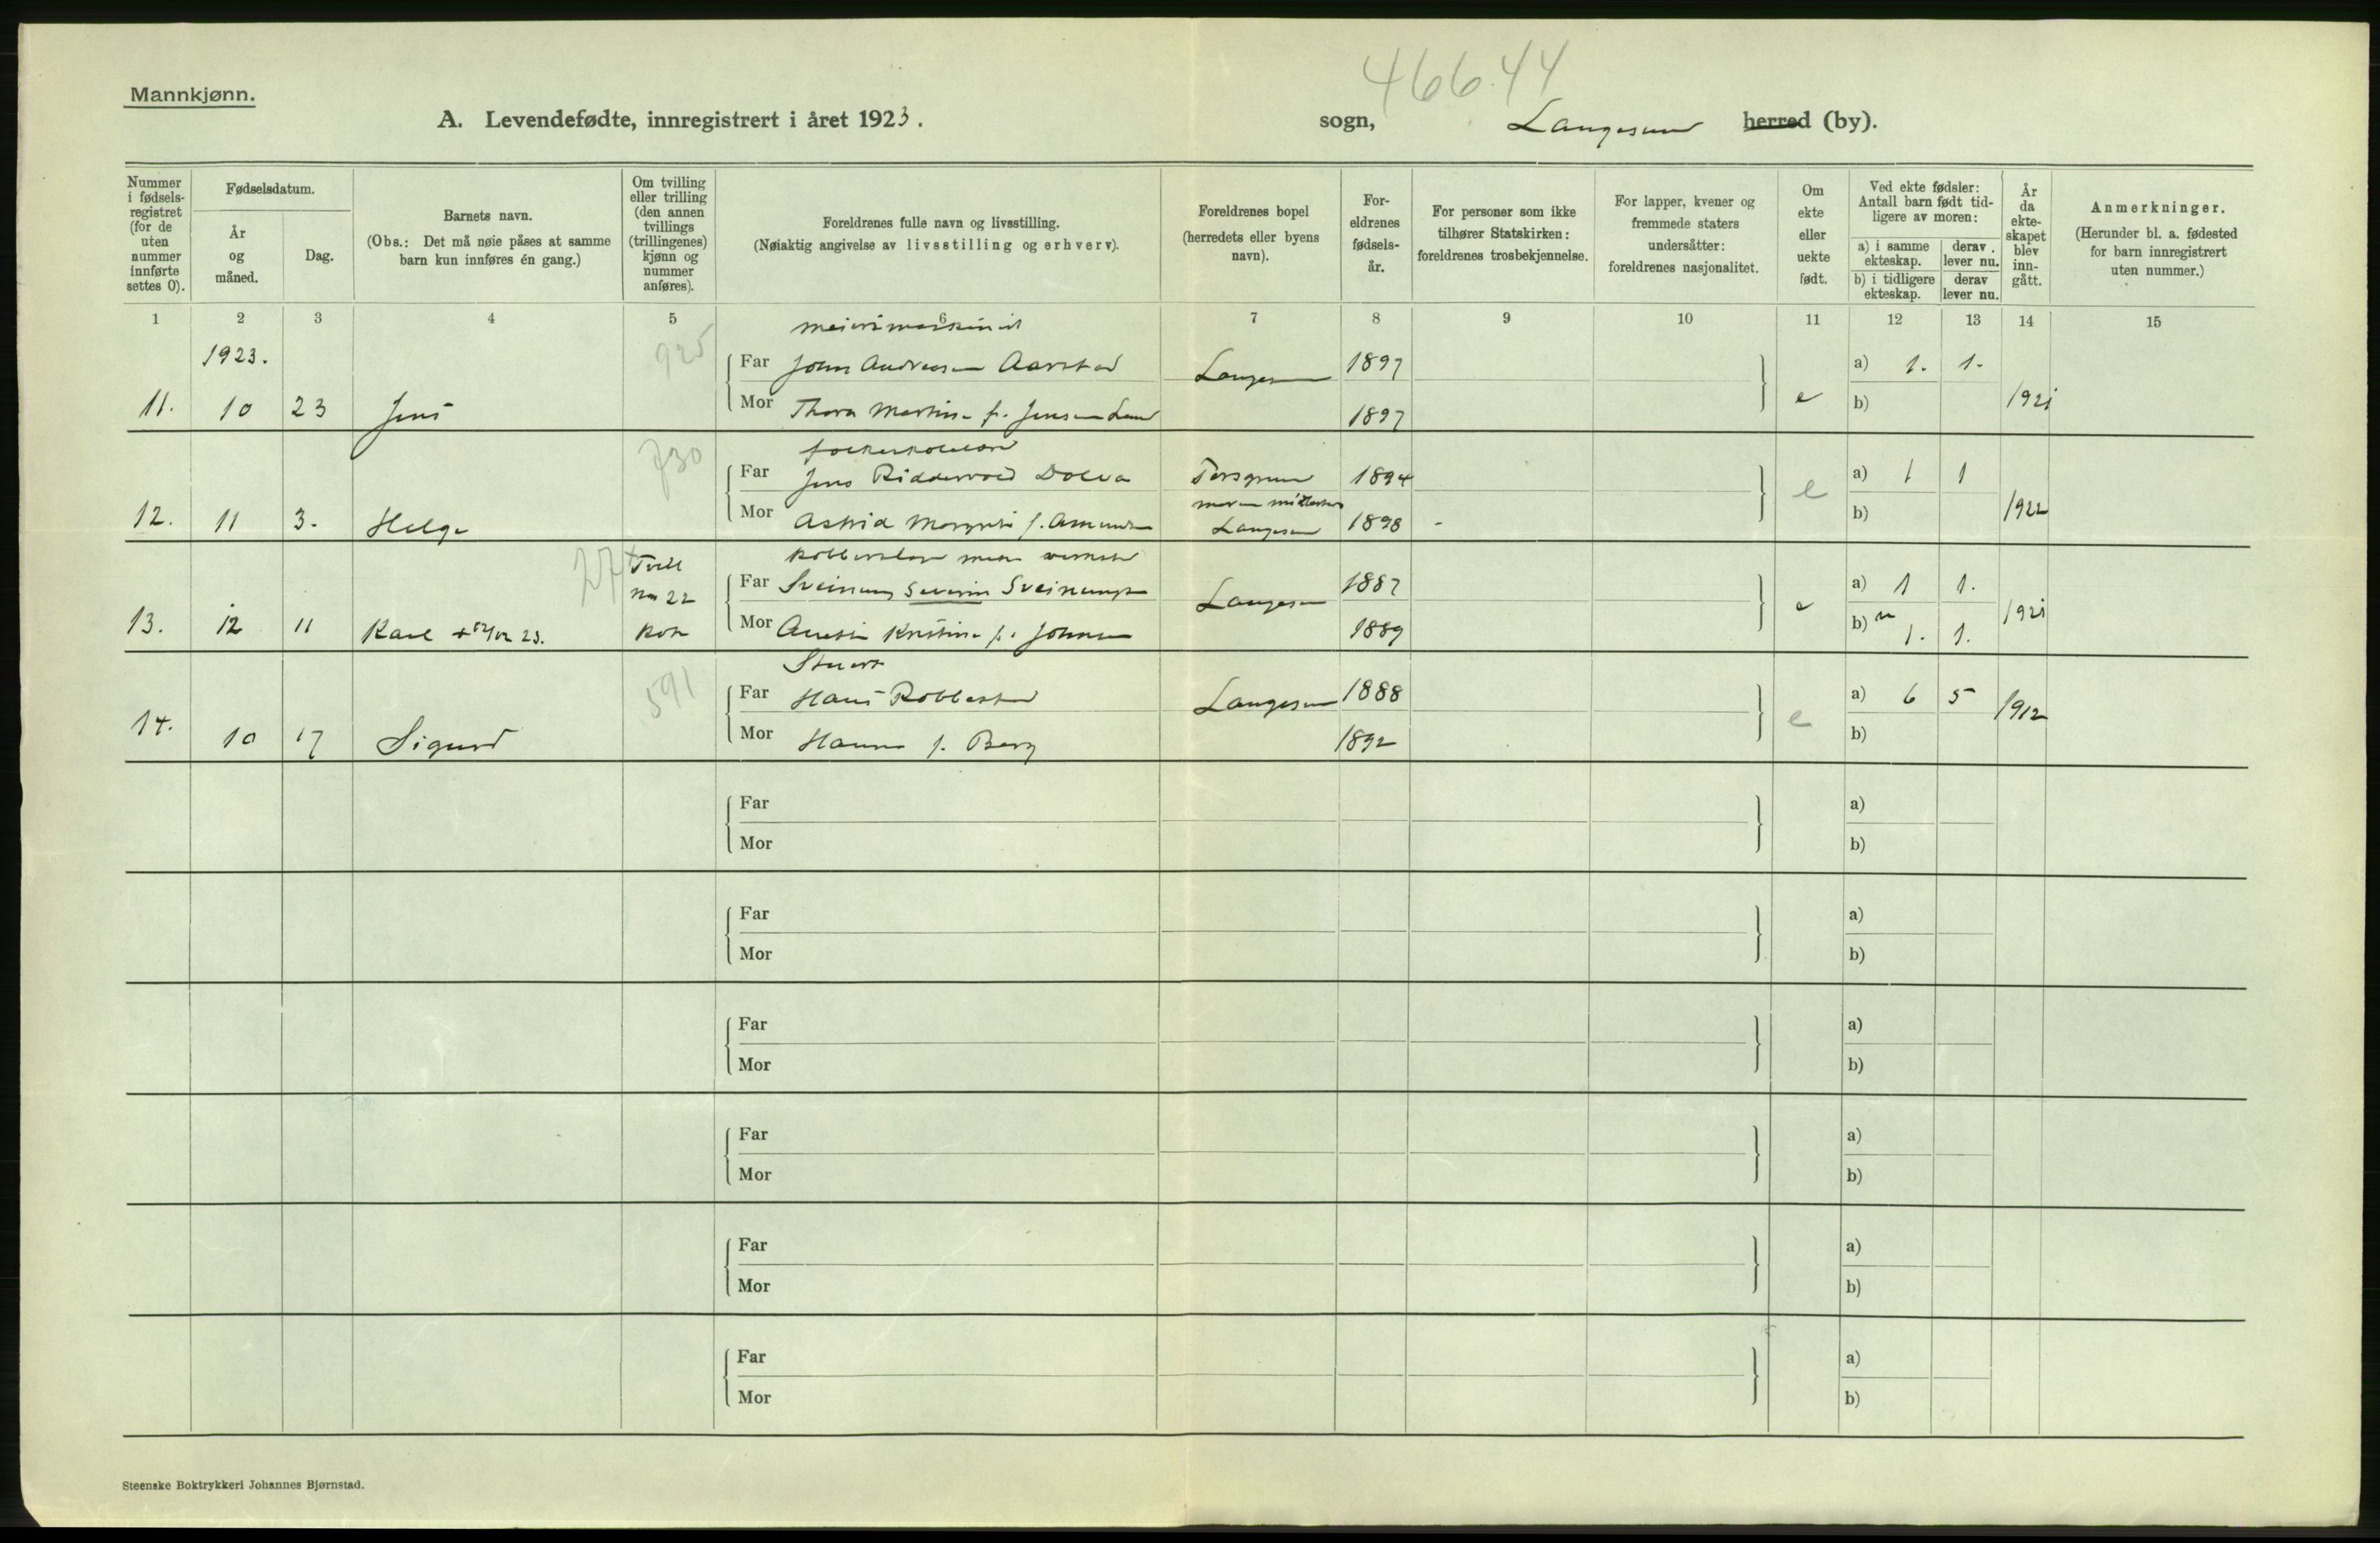 466.44
Mannkjønn.
A. Levendefødte, innregistrert i året 1923. sogn, Langesund herred (by).
Nummer i fødsels-registret (for de uten nummer innførte settes 0).
Fødselsdatum.
År og måned.
Dag.
Barnets navn.
(Obs.: Det må nøie påses at samme barn kun innføres én gang.)
Om tvilling eller trilling (den annen tvillings (trillingenes) kjønn og nummer anføres).
Foreldrenes fulle navn og livsstilling.
(Nøiaktig angivelse av livsstilling og erhverv).
Foreldrenes bopel (herredets eller byens navn).
For-eldrenes fødsels-år.
For personer som ikke tilhører Statskirken: foreldrenes trosbekjennelse.
For lapper, kvener og fremmede staters undersåtter: foreldrenes nasjonalitet.
Om ekte eller uekte født.
Ved ekte fødsler: Antall barn født tid-ligere av moren:
a) i samme ekteskap. derav lever nu.
b) i tidligere ekteskap. derav lever nu.
År da ekte-skapet blev inn-gått.
Anmerkninger.
(Herunder bl. a. fødested for barn innregistrert uten nummer.)
1 2 3 4 5 6 7 8 9 10 11 12 13 14 15
1923. 925
Far John Andreasen Aarstad Langesund 1897 a) 1. 1.
11. 10 23 Jens Mor Thora 1897 e b) 1921
730
Far Jens Riddervold Dolva Porsgrunn 1894 a) 1 1
12. 11 3. Helge Mor Astrid Langesund 1898 - e b) 1922
274 Tvill
nr 22 Far Sveinung Severin Langesund 1887 a) 1 1.
13. 12 11 Karl + 12/12 23. Mor Kristine f. 1889 e b) 1. 1. 1921
591
Far Hans Langesund 1888 a) 6 5
14. 10 17 Sigurd Mor f. Berg 1892 e b) 1912
Far a)
Mor b)
Far a)
Mor b)
Far a)
Mor b)
Far a)
Mor b)
Far a)
Mor b)
Far a)
Mor b)
Steenske Boktrykkeri Johannes Bjørnstad.